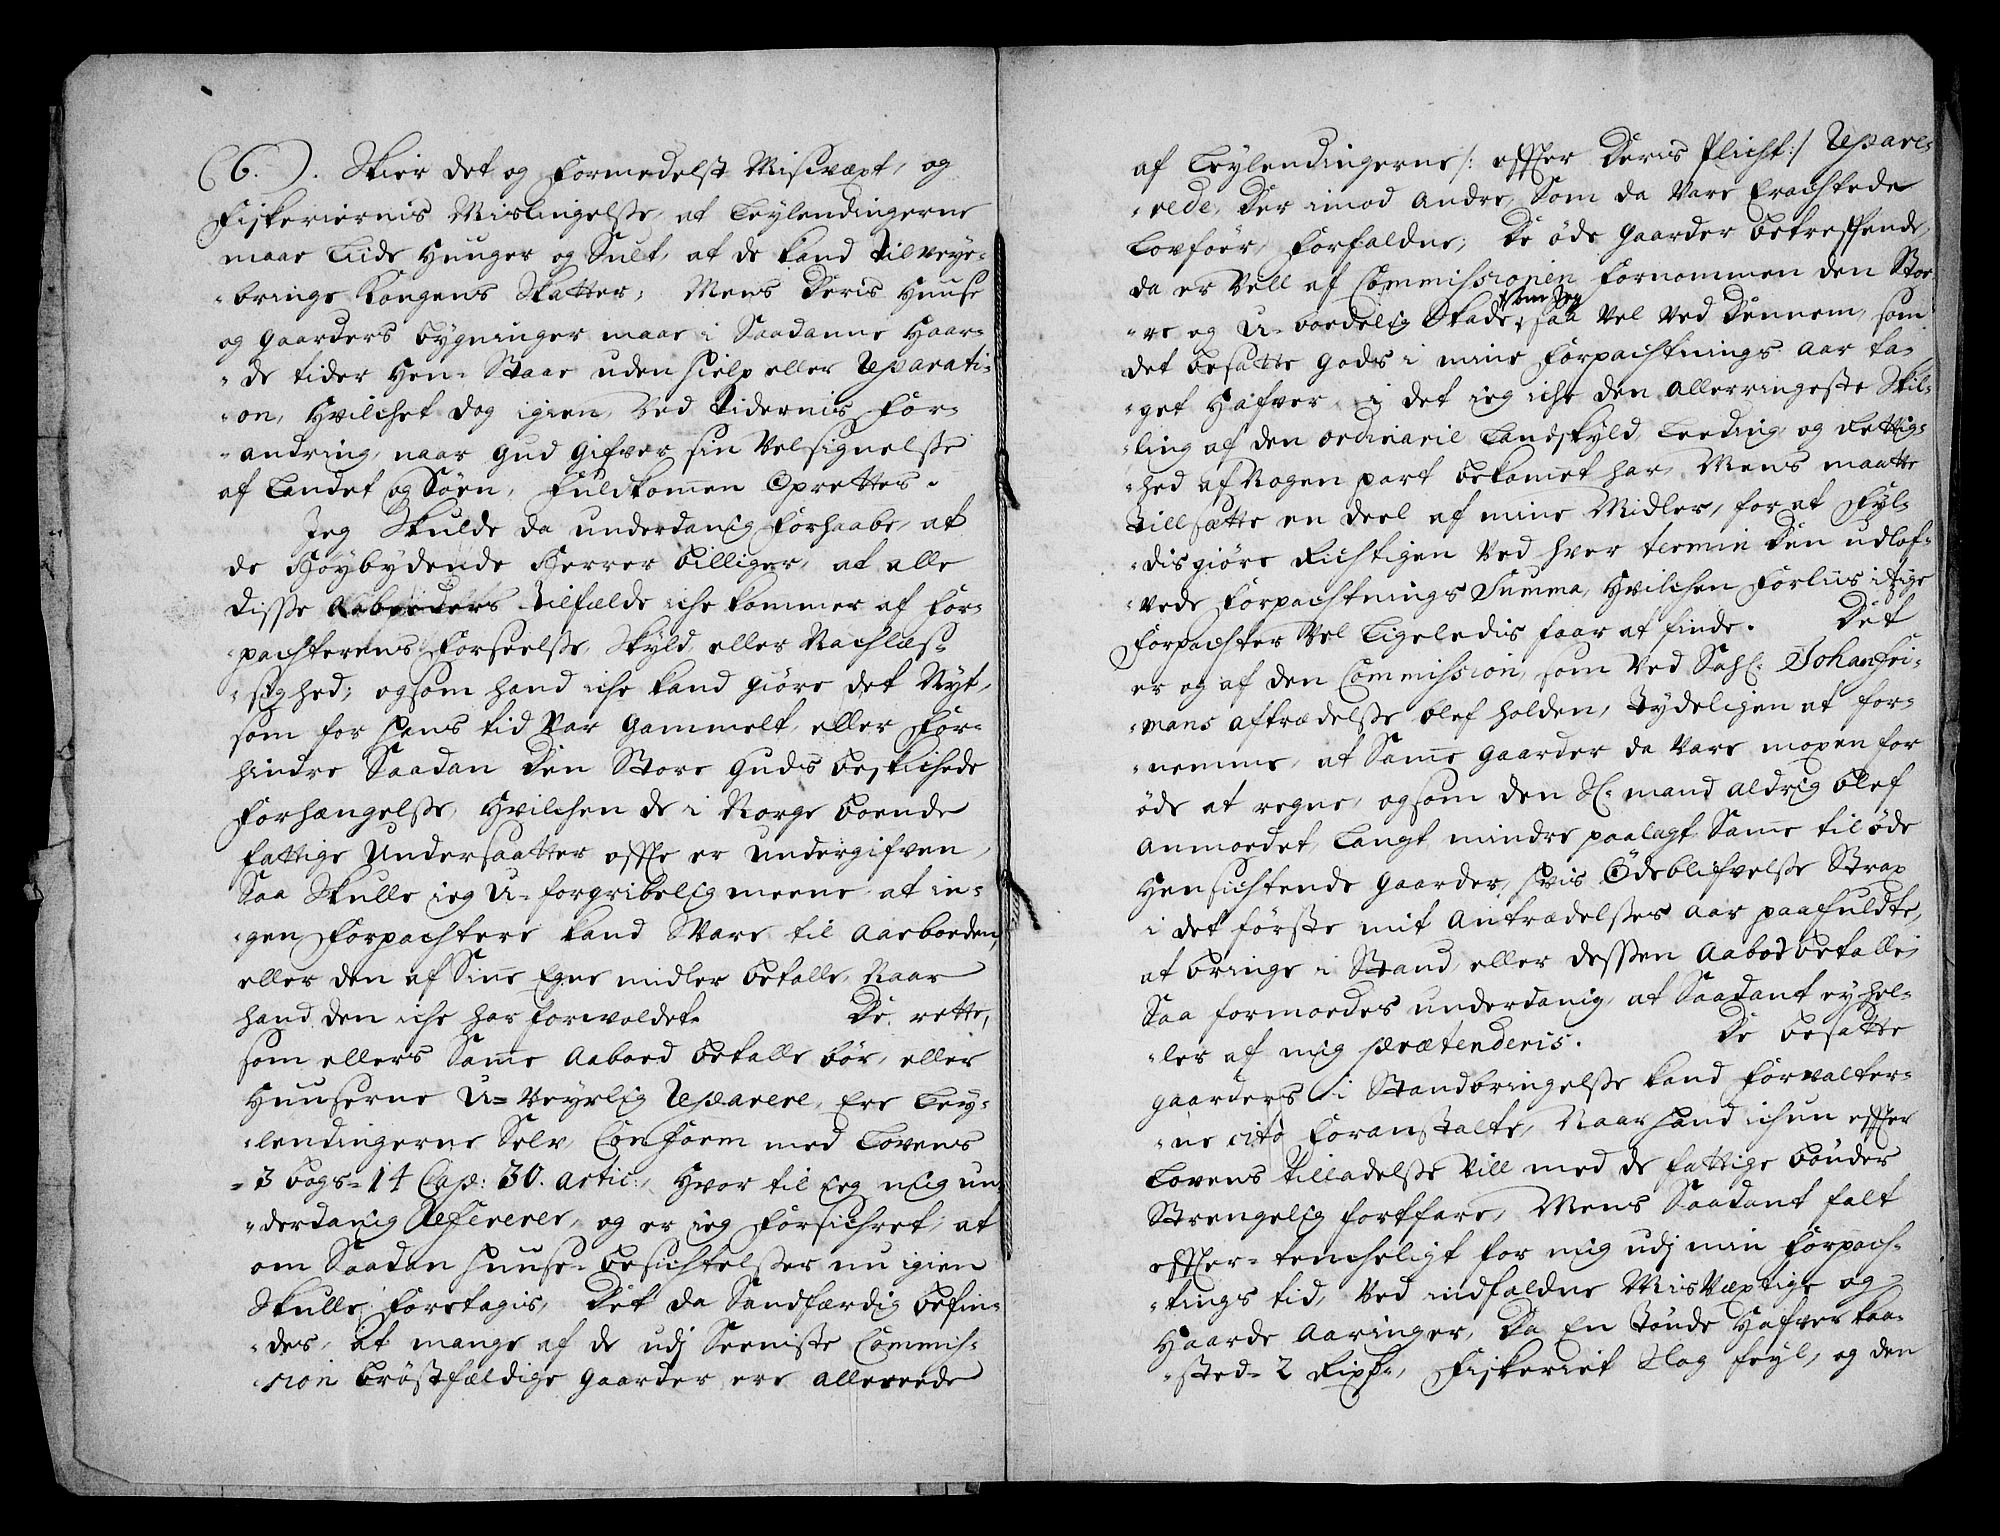 (6.). Skier det og formedelst Misvæxt, og
Fiskeriernis Mislingelsse, at Leylendingerne
maae Liide Hunger og Sult, at de kand tilveye-
-bringe Kongens Skatter; Mens deris Huuse
og gaarders bygninger maae i Saadanne Haar-
-de tider Hen- Staae uden hielp eller Reparati-
-on, Hvilchet dog igien, ved tidernis For-
-andring, naar Gud gifver sin Velsignelsse
af Landet og Søen, Fuldkomen Oprettes.
Jeg Skulde da underdanig forhaabe, at
de Høybydende Herrer billiger, at alle
disse Aaboeders tilfælde iche kommer af For-
pachterens Forseelsse, Skyld, eller Nachlæs-
-sighed; og som hand iche kand giøre det Nyt,
som for hans tid var gammelt, eller For-
hindre Saadan den Store Guds beskichede
Forhængelsse, Hvilchen de i Norge boende
fattige Undersaatter offte er undergifven,
Saa Skulle ieg U-forgribelig meene, at in-
-gen Forpachtere kand Svare til Aarboeden,
eller den af Sine Egne midler betalle, Naar
hand den iche har forvoldet. De rette,
som ellers Same Aaboed betalle bør, eller
Huuserne U-Veyrlig Reparere, Ere Ley-
-lendingerne Selv, Conform med Lovens
-3 bogs- 14 Cap: 30. artic:, Hvor til ieg mig un-
-derdanig Refererer, og er ieg Forsichret, at
om Saadan Huuse- besichtelsser nu igien
Skulle foretagis, det da Sandfærdig befin-
-des, at mange af de udj Seeniste Commis-
-sion brøstfældige gaarder ere allereede
af Leylendingerne /: effter deris Plicht :/ Repare-
-rede, der imod andre, Som da vare Erachtede
Lovføer, forfaldne; De øde gaarder betreffende,
da er Vell af Commissionen fornommen den Stoe-
-re og U-boedelig Skade, som Jeg saa vel ved dennem, som
det besatte gods i mine Forpachtnings aar ta-
-get Hafver, i det ieg iche den allerringeste Skil-
-ling af den ordinarie Landskyld, Leeding, og Rettig-
-hed af Nogen part bekomet har, Mens maatte
tillsætte en deel af mine Midler, for at Fyl-
-disgiøre Richtigen ved hver termin den udlof-
-vede Forpachtnings Summa, Hvilchen Forliis
Forpachter Vel Ligeledis faar at finde. Det
er og af den Commission, som ved Sahl: Johan Fri-
-mans aftrædelsse blef holden, tydeligen at for-
-nemme, at Same gaarder da vare moxen for
øde at regne, og som den Sl: mand aldrig blef
anmoedet, Langt mindre paalagt Same til øde
Hensichtende gaarder, hvis Ødeblifvelsse Strax
i det første mit Antrædelsses aar paafuldte,
at bringe i Stand, eller dessen Aabod betalle;
Saa formoedes underdanig, at Saadant ey hel-
-ler af mig prætenderis. De besatte
gaarders i Standbringelsse kand Forvalter-
-ne cito foranstalte, Naar hand ichun effter
Lovens tilladelsse vill med de fattige bønder
Strengelig fortfare, Mens Saadant falt
effter-tencheligt for mig udj min Forpach-
-tings tid, ved indfaldne Misvæxtige og
Haarde Aaringer, da En tønde Hafver kaa-
-sted- 2 Rixdr., Fiskeriet slog feyl, og den